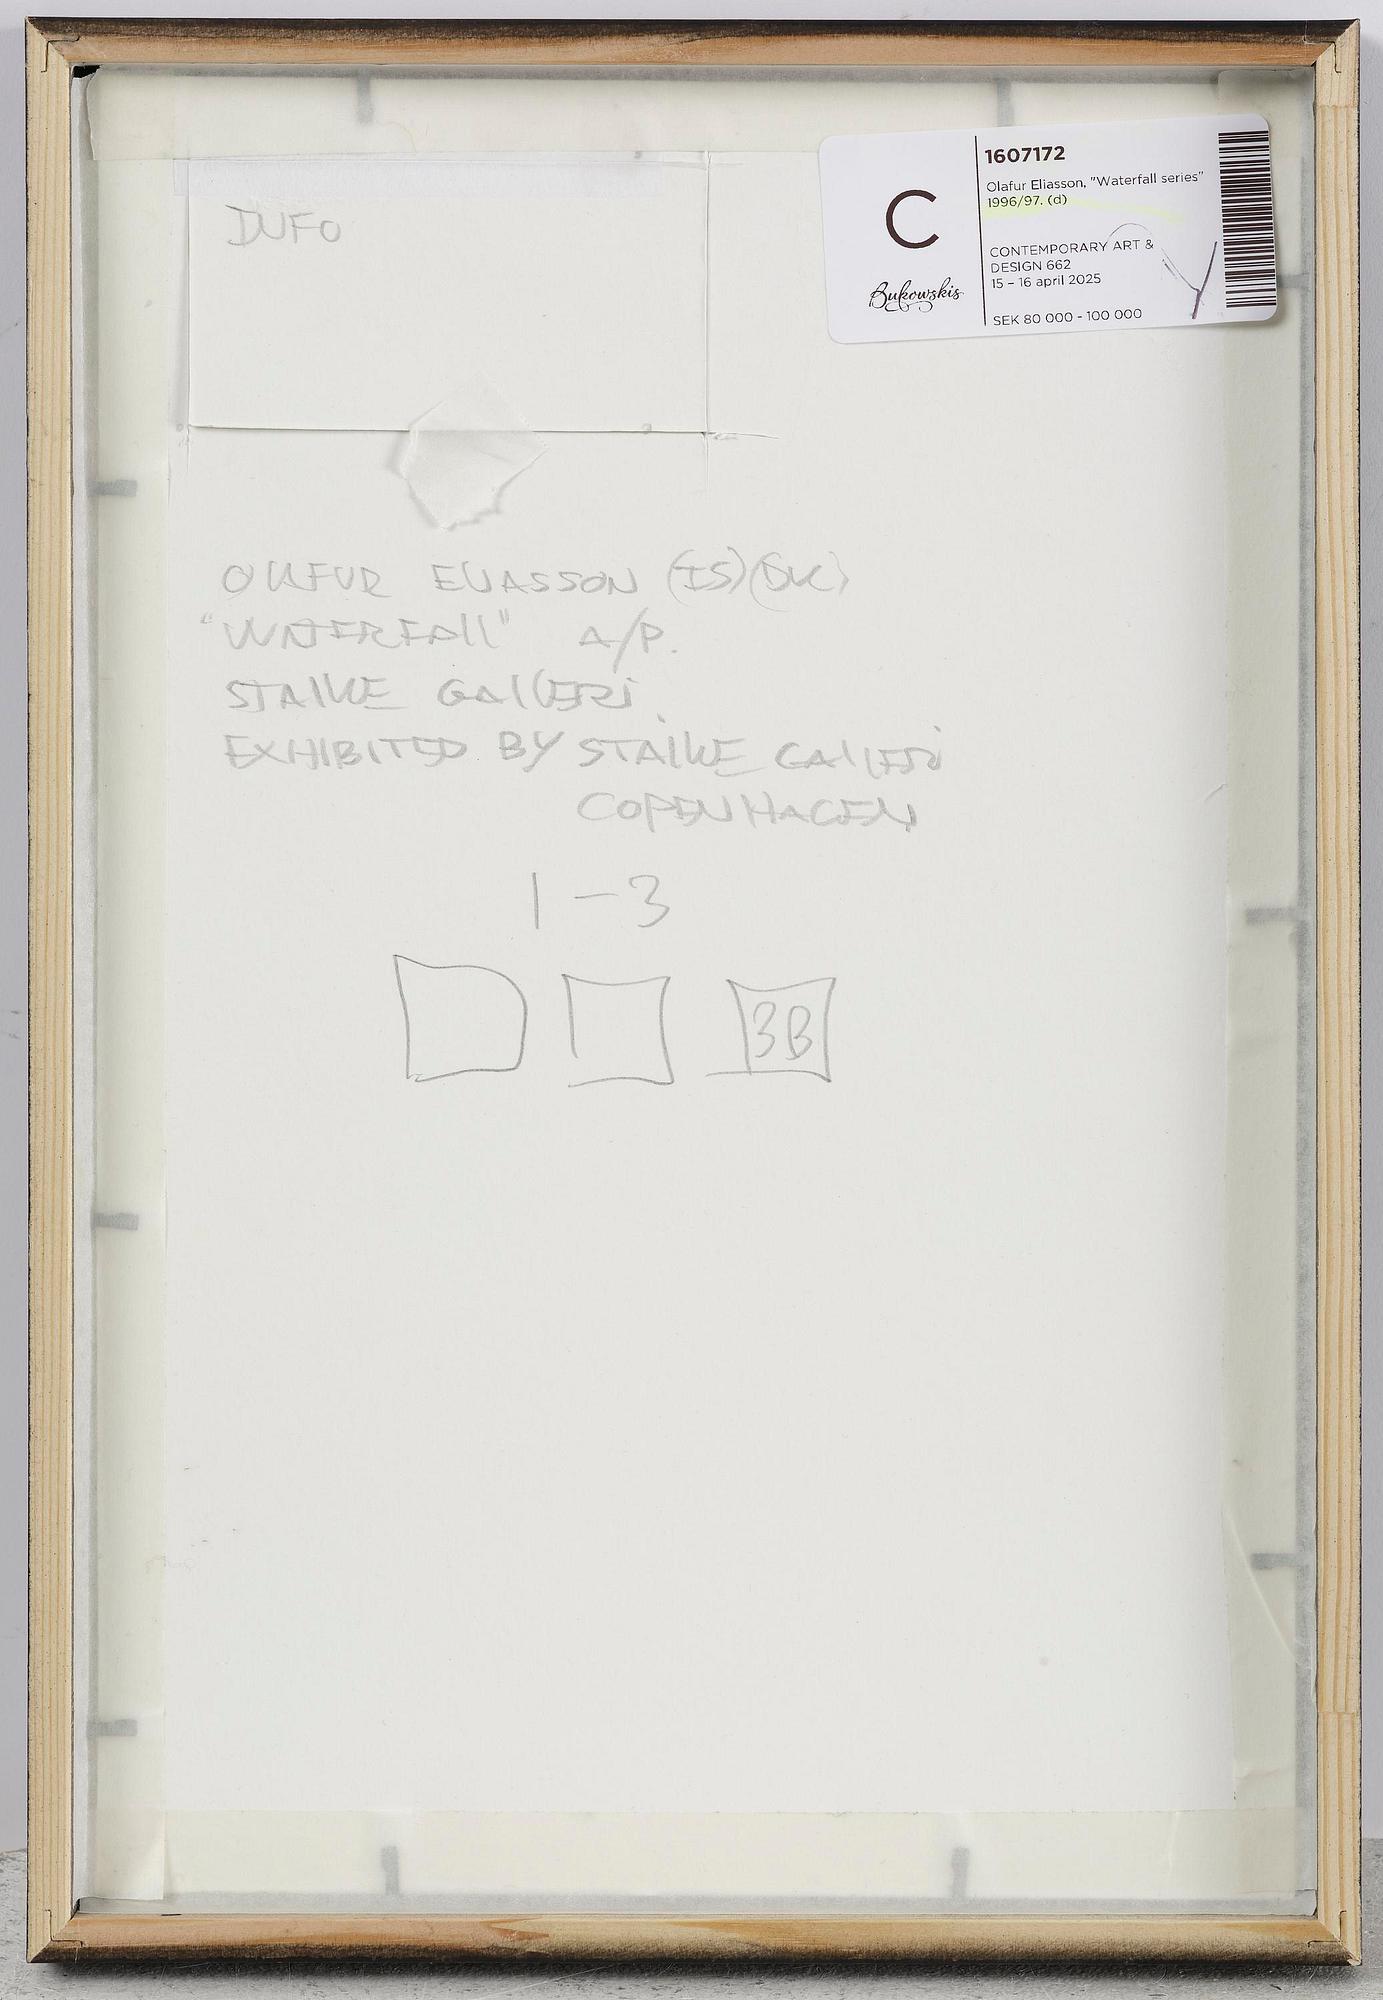 1607172
Olafur Eliasson, "Waterfall series"
1996/97. (d)
C
CONTEMPORARY ART &
DESIGN 662
15 – 16 april 2025
Bukowskis
SEK 80 000 - 100 000
OLAFUR ELIASSON (IS)(DK)
"WATERFALL" A/P.
STALKE GALLERI.
EXHIBITED BY STALKE GALLERI
COPENHAGEN
1 – 3
3B